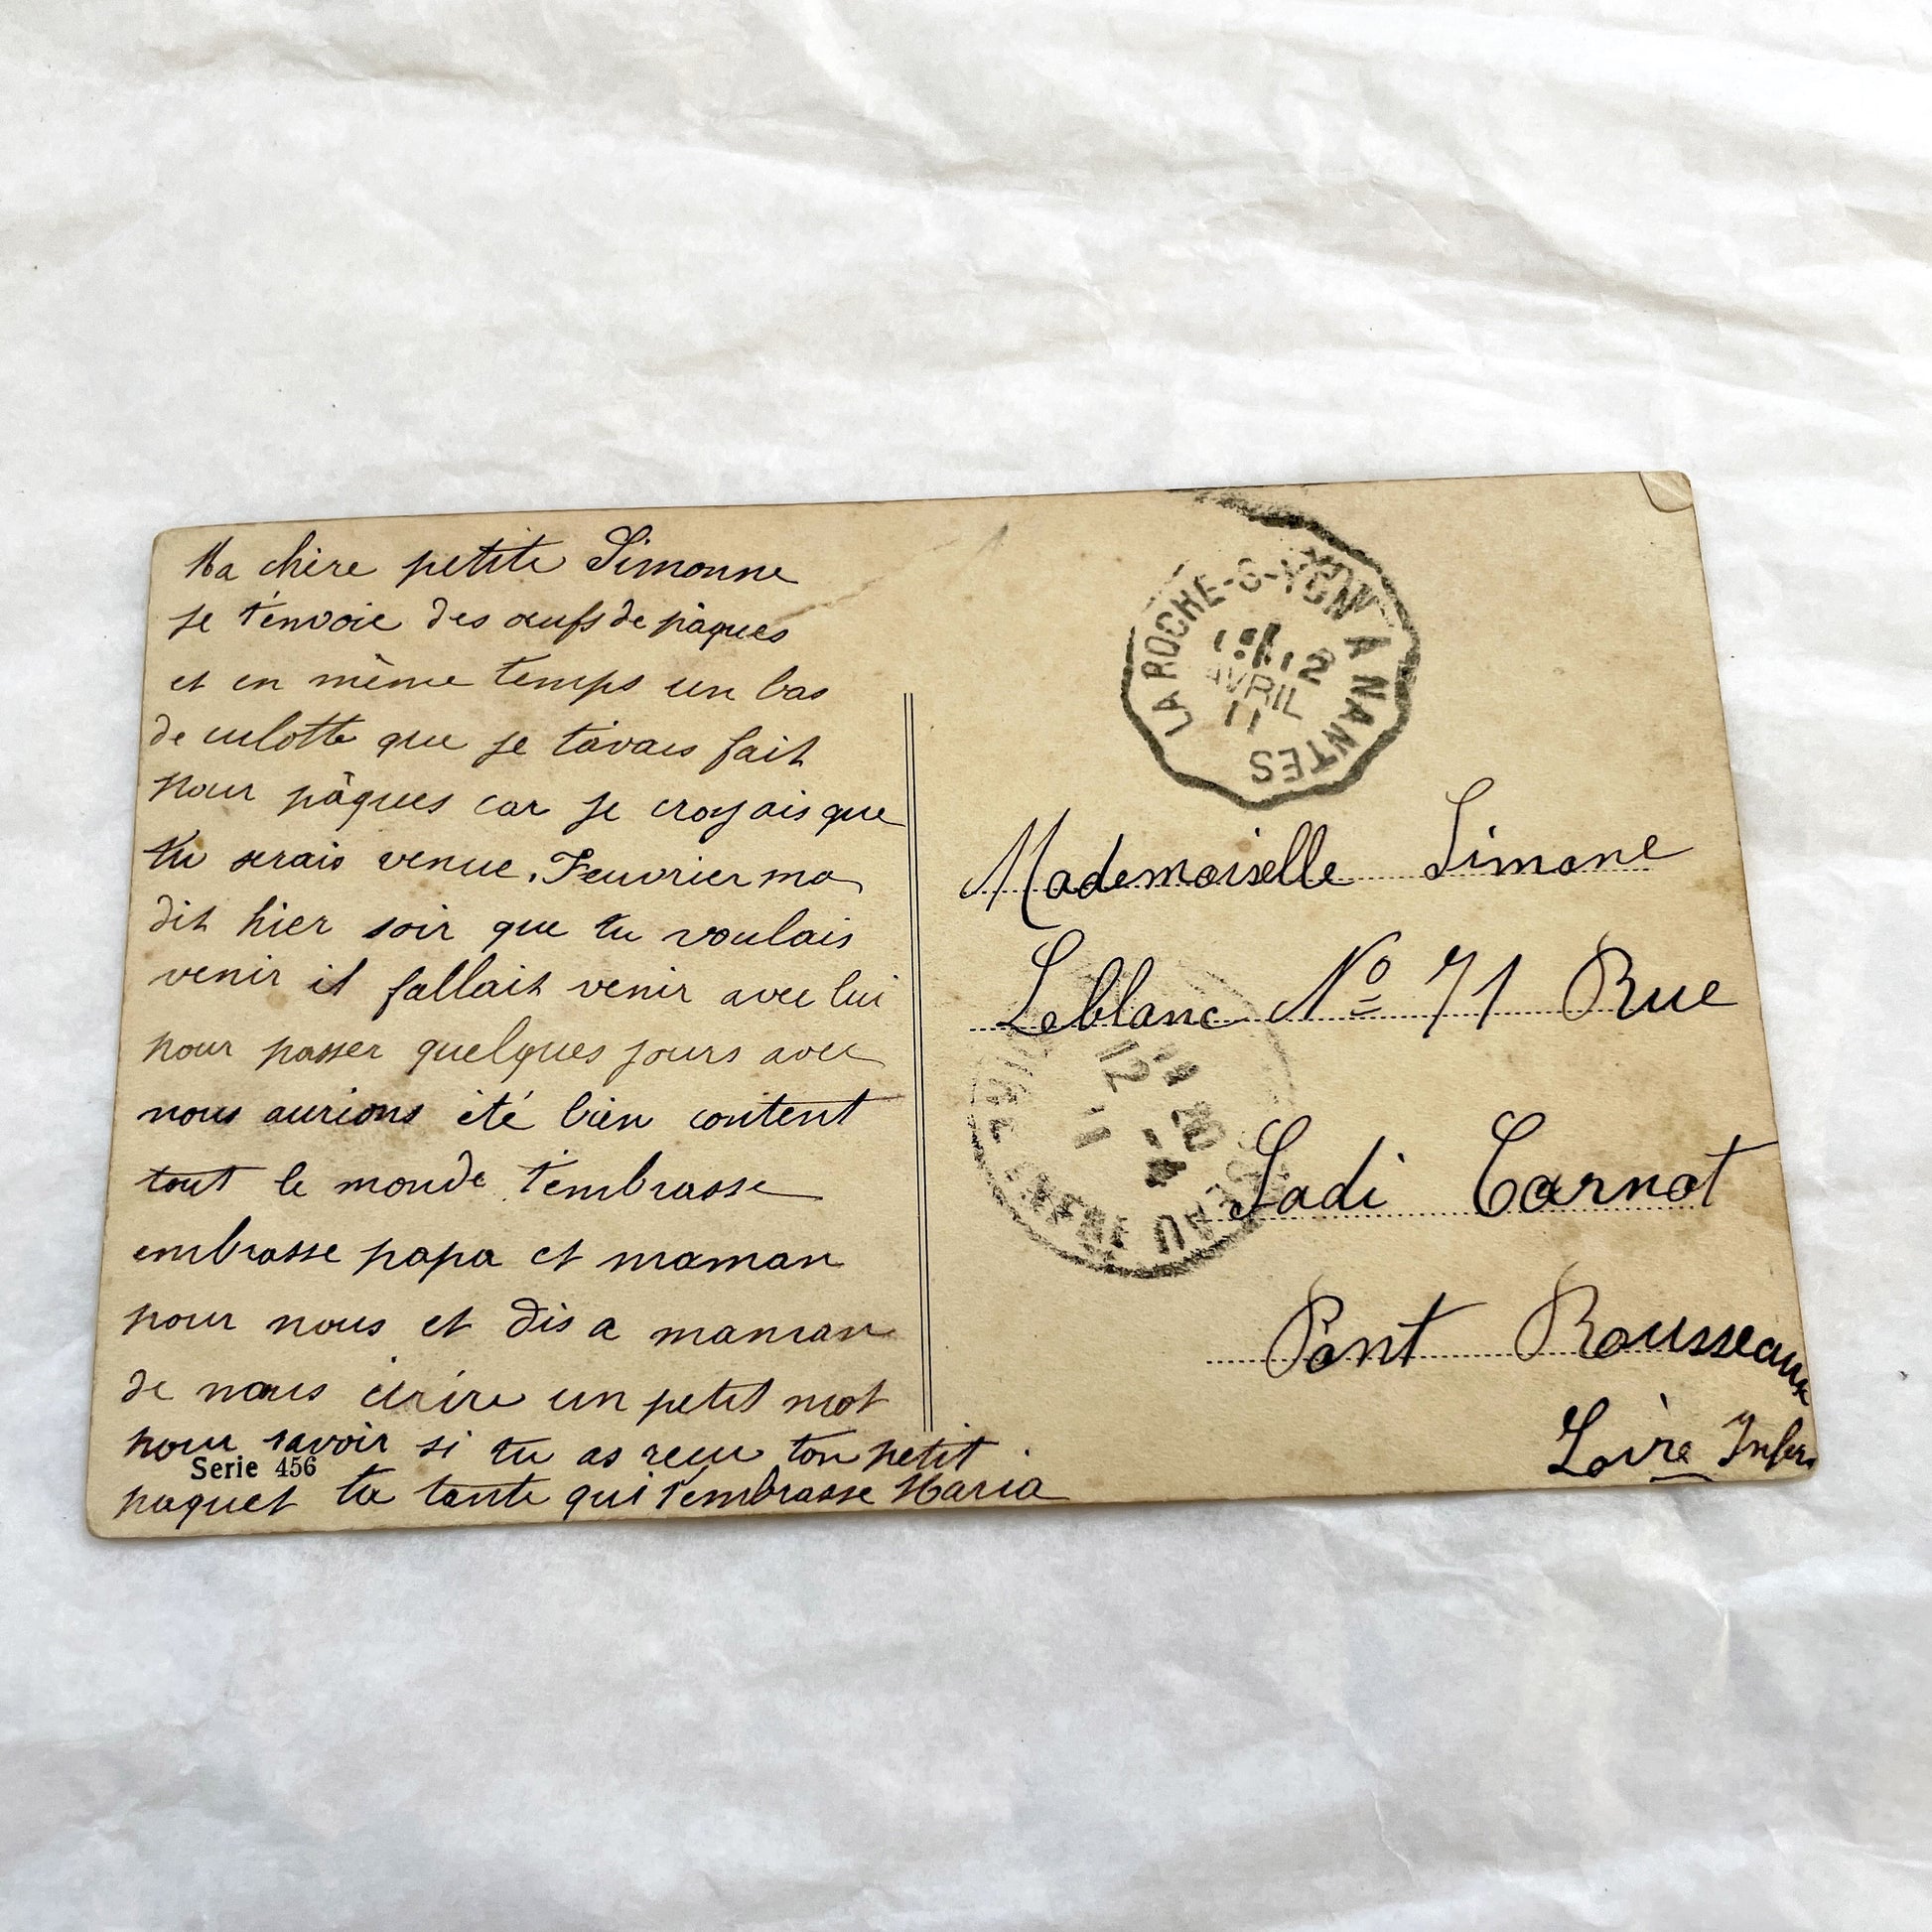 Ma chère petite Simonne
je t'envoie des œufs de pâques
et en même temps un bas
de culotte que je tavais fait
pour pâques car je croyais que
tu serais venue. Feuvrier ma
dit hier soir que tu voulais
venir il fallait venir avec lui
pour passer quelques jours avec
nous aurions été bien content
tout le monde t'embrasse
embrasse papa et maman
pour nous et dis a maman
de nous écrire un petit mot
pour savoir si tu as reçu ton petit
Serie 456
paquet ta tante qui t'embrasse Maria
LA ROCHE-S-YON A NANTES
12
AVRIL
11
Mademoiselle Simone
Leblanc No 71 Rue
Sadi Carnot
Pont Rousseaux
Loire Infer.
12
11